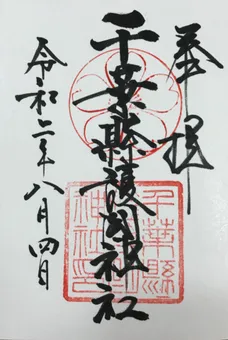 奉拝
千葉縣護國神社
令和二年八月四日
千葉縣護國神社印